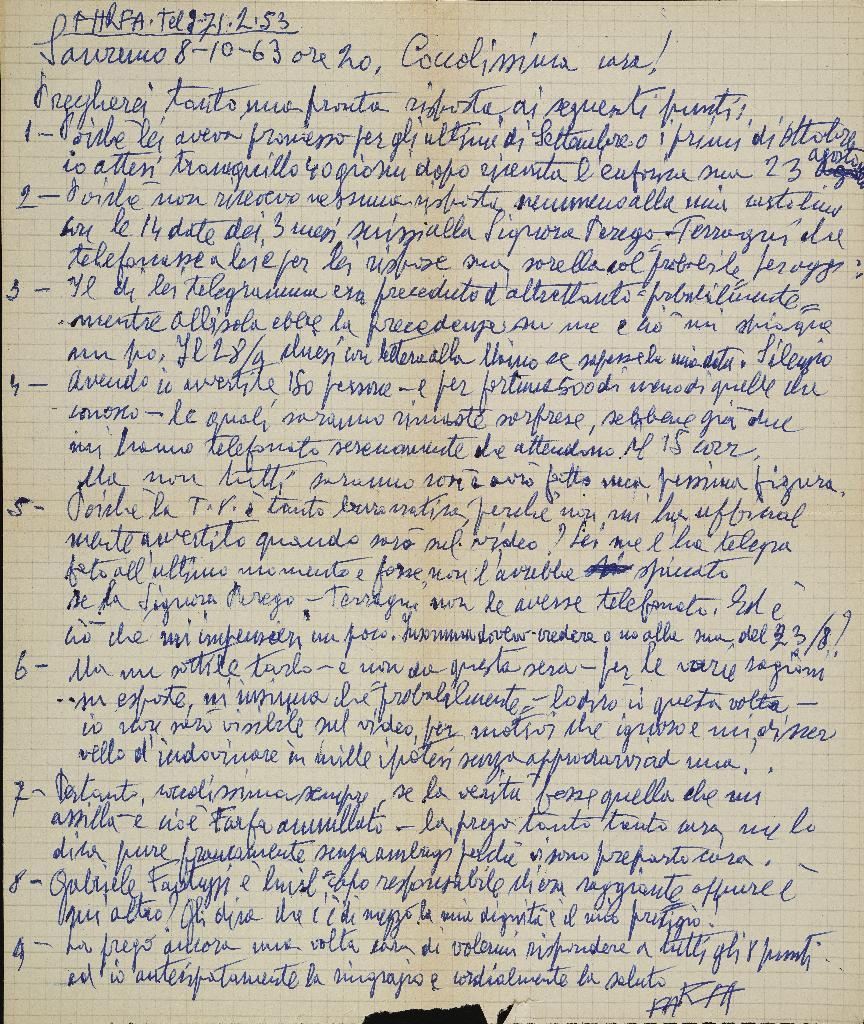 FARFA. Tel 71.2.53
Sanremo 8-10-63 ore 20, Coccolissima cara!
Pregherei tanto una pronta risposta, ai seguenti punti:
1 - Poichè lei aveva promesso per gli ultimi di Settembre o i primi di Ottobre
io attesi tranquillo 40 giorni dopo ricevuta l'euforica sua 23 agosto
2 - Poichè non ricevevo nessuna risposta, nemmeno alla mia cartolina
con le 14 date dei 3 mesi scrissi alla Signora Perego-Terragni che
telefonasse a lei e per lei rispose sua sorella col "probabile per oggi"
3 - Il di lei telegramma era preceduto d'altrettanto "probabilmente"
mentre Allisola ebbe la precedenza su me e ciò mi spiacque
un po. Il 28/9 chiesi con lettera alla Maino se sapesse la mia data. Silenzio
4 - Avendo io avvertite 150 persone - e per fortuna 500 di meno di quelle che
conosco - le quali saranno rimaste sorprese, sebbene già due
mi hanno telefonato serenamente che attendono il 15 corr.
Ma non tutti saranno così e avrò fatto una pessima figura.
5 - Poichè la T.V. è tanto burocratica, perchè non mi ha ufficial
mente avvertito quando sarò sul video? Lei me l'ha telegra
fato all'ultimo momento e forse, non l'avrebbe spiccato
se la Signora Perego-Terragni non le avesse telefonato. Ed è
ciò che mi impensierì un poco. Insomma dovevo credere o no alla sua del 23/8?
6 - Ma un sottile tarlo - e non da questa sera - per le varie ragioni
su esposte, mi insinua che "probabilmente" - lo dirò io questa volta -
io non sarò visibile sul video, per motivi che ignoro e mi discer
vello d'indovinare in mille ipotesi senza approdarvi ad una.
7 - Pertanto, coccolissima sempre, se la verità fosse quella che mi
assilla - e cioè Farfa annullato - la prego tanto tanto cara, me lo
dica pure francamente senza ambagi perchè vi sono preparato cara.
8 - Gabriele Fantuzzi è lui il capo responsabile di era raggiante oppure è
un altro? Gli dica che c'è di mezzo la mia dignità e il mio prestigio!
9 - La prego ancora una volta cara di volermi rispondere a tutti gli 8 punti
ed io anticipatamente la ringrazio e cordialmente la saluto
FARFA